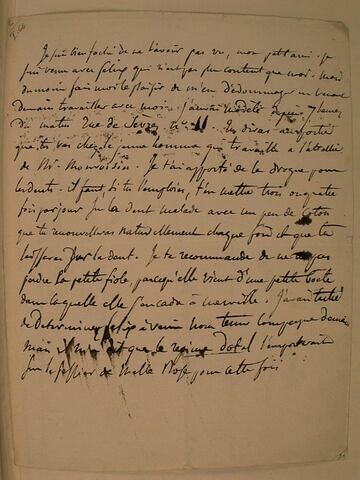 Je suis bien fâché de ne t'avoir pas vu, mon petit ami. je
suis venu avec Félix qui n'est pas plus content que moi. mais
du moins fais moi le plaisir de m'en dédommager en venant
demain travailler avec moi. J'aurai modèle depuis 7 heures
du matin rue de Sèvres n° 11. Tu diras au portier
que tu vas chez le jeune homme qui travaille à l'atelier
de Mr. Mauvoisin. Je t'ai apporté de la drogue pour
les dents. il faut si tu l'emploies, t'en mettre trois ou quatre
fois par jour sur la dent malade avec un peu de coton
que tu renouvelleras naturellement chaque fois et que tu
laisseras sur la dent. Je te recommande de ne pas
perdre la petite fiole, parcequ'elle vient d'une petite boete
dans laquelle elle J'avais tenté
de déterminer Félix à venir nous tenir compagnie demain
mais il m'a dit que le régime dotal l'emporterait
sur le fessier de Melle Rose pour cette fois